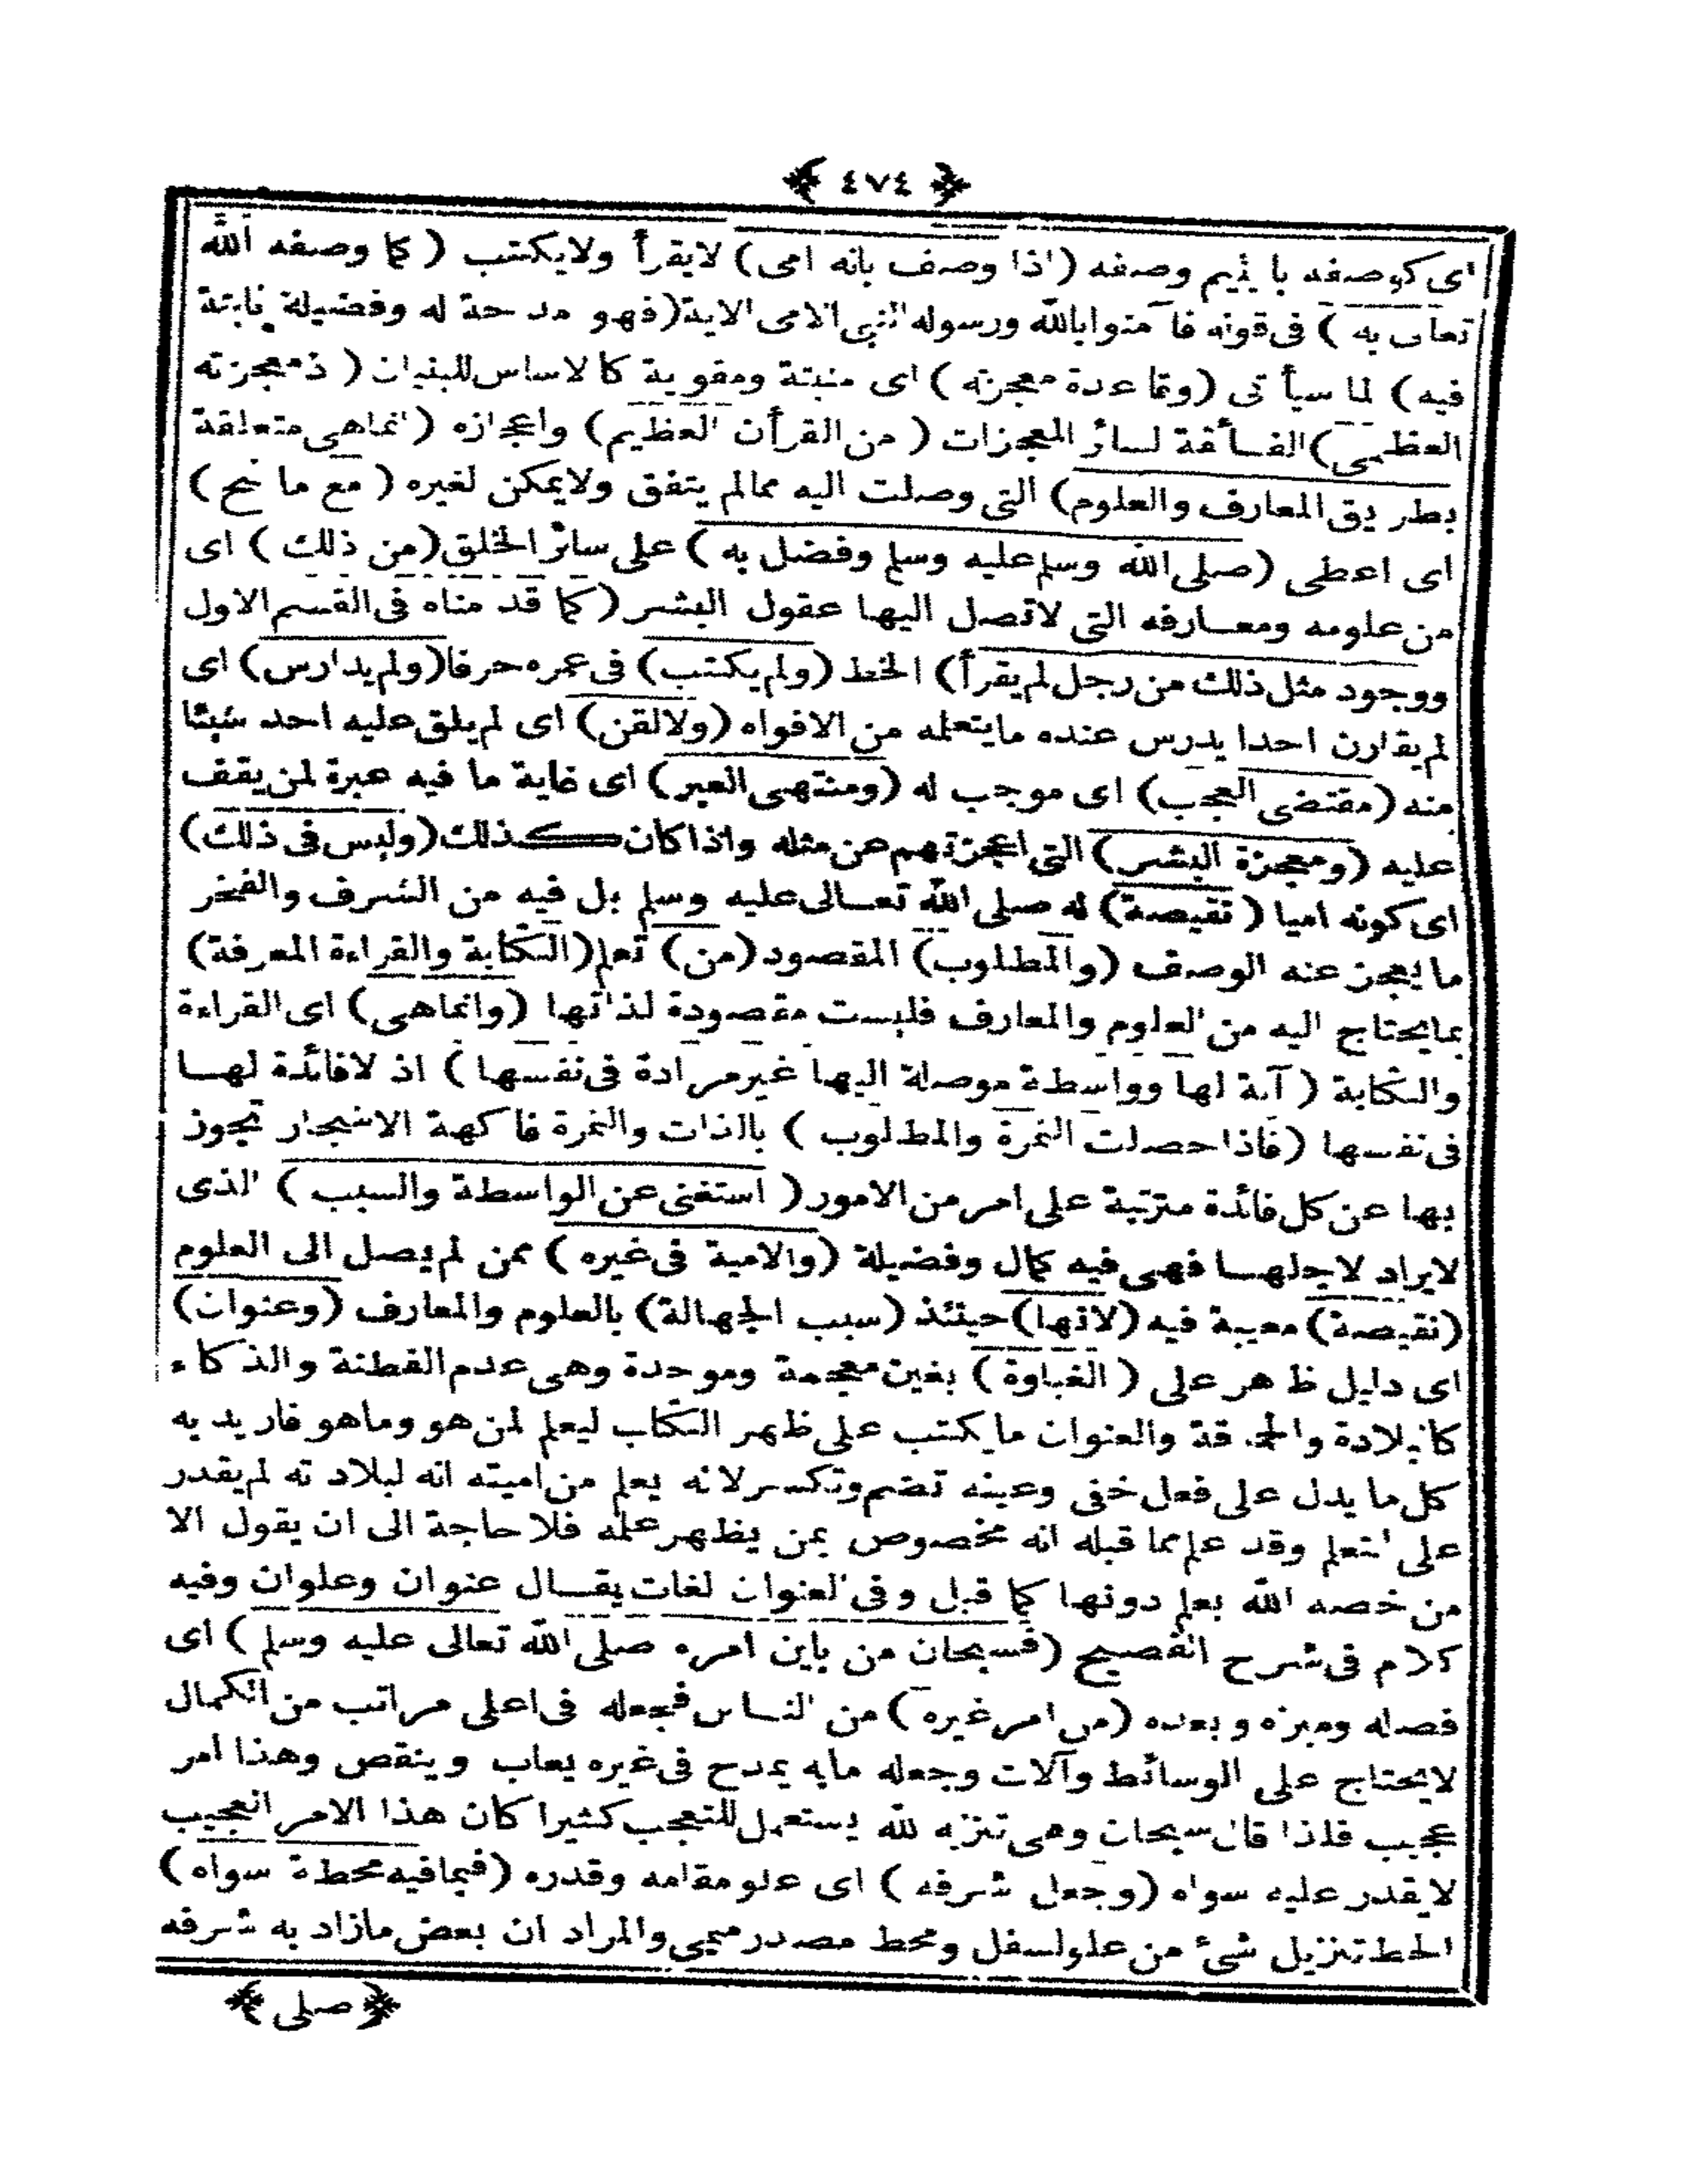 ﴿ ٤٧٤ ﴾
اى كوصفه باليتيم وصفه (اذا وصف بانه امى) لايقرأ ولايكتب (كما وصفه الله
تعالى به) فى قوله فآمنوا بالله ورسوله النبى الامى الاية (فهو مدحة له وفضيلة ثابتة
فيه) لما سيأتى (وقاعدة معجزته) اى مثبتة ومقوية كالاساس للبنيان (اذ معجزته
العظمى) الفائقة لسائر المعجزات (من القرأن العظيم) واعجازه (انماهى متعلقة
بطريق المعارف والعلوم) التى وصلت اليه ممالم يتفق ولايمكن لغيره (مع ما منح)
اى اعطى (صلى الله وسلم عليه وسلم وفضل به) على سائر الخلق (من ذلك) اى
من علومه ومعارفه التى لاتصل اليها عقول البشر (كما قدمناه فى القسم الاول
ووجود مثل ذلك من رجل لم يقرأ) الخط (ولم يكتب) فى عمره حرفا (ولم يدارس) اى
لم يقارن احدا يدرس عنده مايتعلمه من الافواه (ولالقن) اى لم يلق عليه احد شيئا
منه (مقتضى العجب) اى موجب له (ومنتهى العبر) اى غاية ما فيه عبرة لمن يقف
عليه (ومعجزة البشر) التى اعجزتهم عن مثله واذا كان كذلك (وليس فى ذلك)
اى كونه اميا (نقيصة) له صلى الله تعالى عليه وسلم بل فيه من الشرف والفخر
ما يعجز عنه الوصف (والمطلوب) المقصود (من) تعلم (الكتابة والقراءة المعرفة)
بمايحتاج اليه من العلوم والمعارف فليست مقصودة لذاتها (وانماهى) اى القراءة
والكتابة (آلة لها وواسطة موصلة اليها غير مرادة فى نفسها) اذ لافائدة لها
فى نفسها (فاذا حصلت الثمرة والمطلوب) بالذات والثمرة فاكهة الاشجار تجوز
بها عن كل فائدة مترتبة على امر من الامور (استغنى عن الواسطة والسبب) الذى
لايراد لاجلها فهى فيه كمال وفضيلة (والامية فى غيره) ممن لم يصل الى العلوم
(نقيصة) معيبة فيه (لانها) حينئذ (سبب الجهالة) بالعلوم والمعارف (وعنوان)
اى دليل ظاهر على (الغباوة) بغين معجمة وموحدة وهى عدم الفطنة والذكاء
كالبلادة والحماقة والعنوان مايكتب على ظهر الكتاب ليعلم لمن هو وماهو فاريد به
كل ما يدل على فعل خفى وعينه تضم وتكسر لانه يعلم من اميته انه لبلادته لم يقدر
على التعلم وقد علم مما قبله انه مخصوص بمن يظهر علمه فلا حاجة الى ان يقول الا
من خصه الله بعلم دونها كما قيل وفى العنوان لغات يقال عنوان وعلوان وفيه
كلام فى شرح الفصيح (فسبحان من باين امره صلى الله تعالى عليه وسلم) اى
فصله وميزه وبعده (من امر غيره) من الناس فجعله فى اعلى مراتب من الكمال
لايحتاج على الوسائط وآلات وجعله مابه يمدح فى غيره يعاب وينقص وهذا امر
عجيب فلذا قال سبحان وهى تنزيه لله يستعمل للتعجب كثيرا كان هذا الامر العجيب
لايقدر عليه سواه (وجعل شرفه) اى علو مقامه وقدره (فيمافيه محطة سواه)
الحط تنزيل شئ من علو لسفل ومحط مصدر ميمى والمراد ان بعض مازاد به شرفه
﴿ صلى ﴾